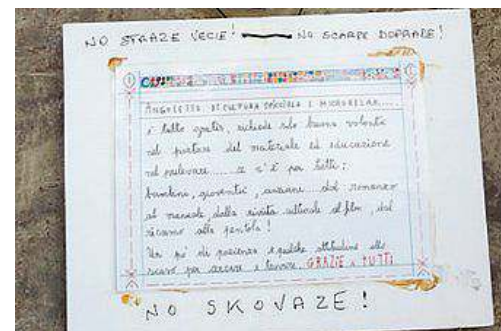 NO STRAZE VECIE! — NO SCARPE DOPRADE!
ANGOLETTO DI CULTURA SPICCIOLA E MICRORELAX....
è tutto gratis, richiede solo buona volontà
nel portare del materiale ed educazione
nel prelevare ... ce n'è per tutti:
bambini, gioventù, anziani.... dal romanzo
al manuale, dalla rivista culturale al film, dal
ricamo alla pentola!
Un po' di pazienza e qualche attitudine alla
per cercare e trovare. GRAZIE a TUTTI
NO SKOVAZE!